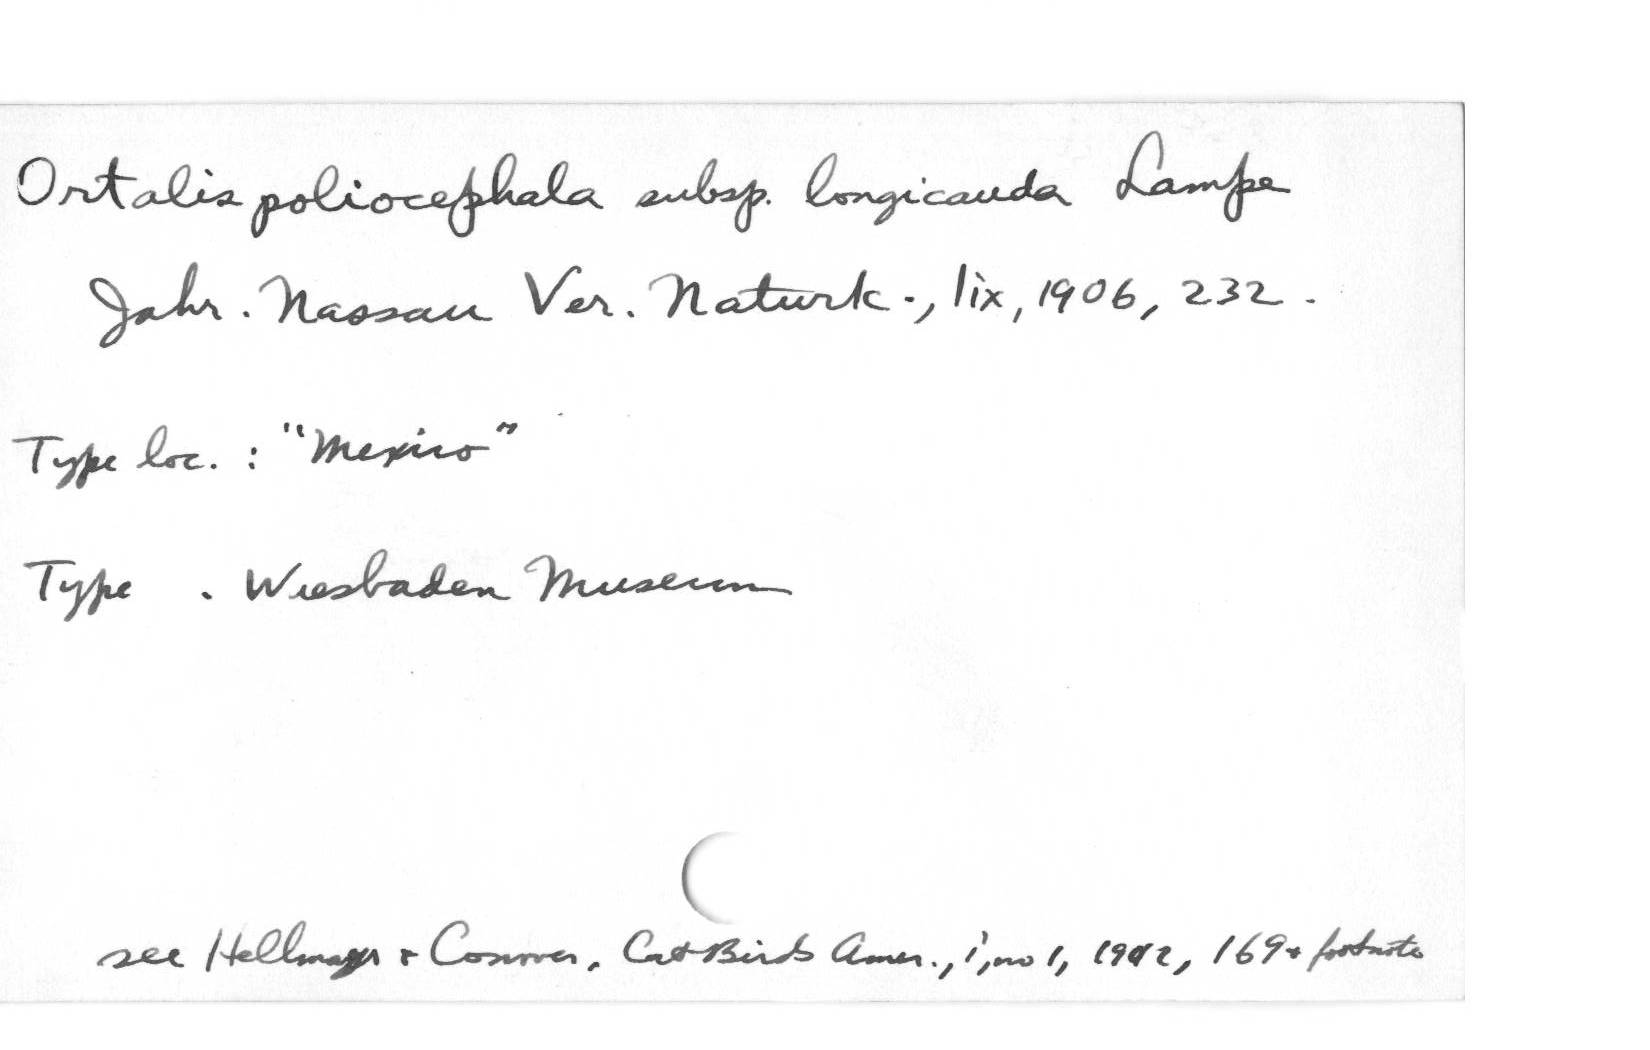 Ortalis poliocephala subsp. longicauda Lampe
Jahr. Nassau Ver. Naturk., lix, 1906, 232.
Type loc. : "Mexico"
Type . Wiesbaden Museum
see Hellmayr & Conover, Cat Birds Amer., i, no 1, 1942, 169 & footnote